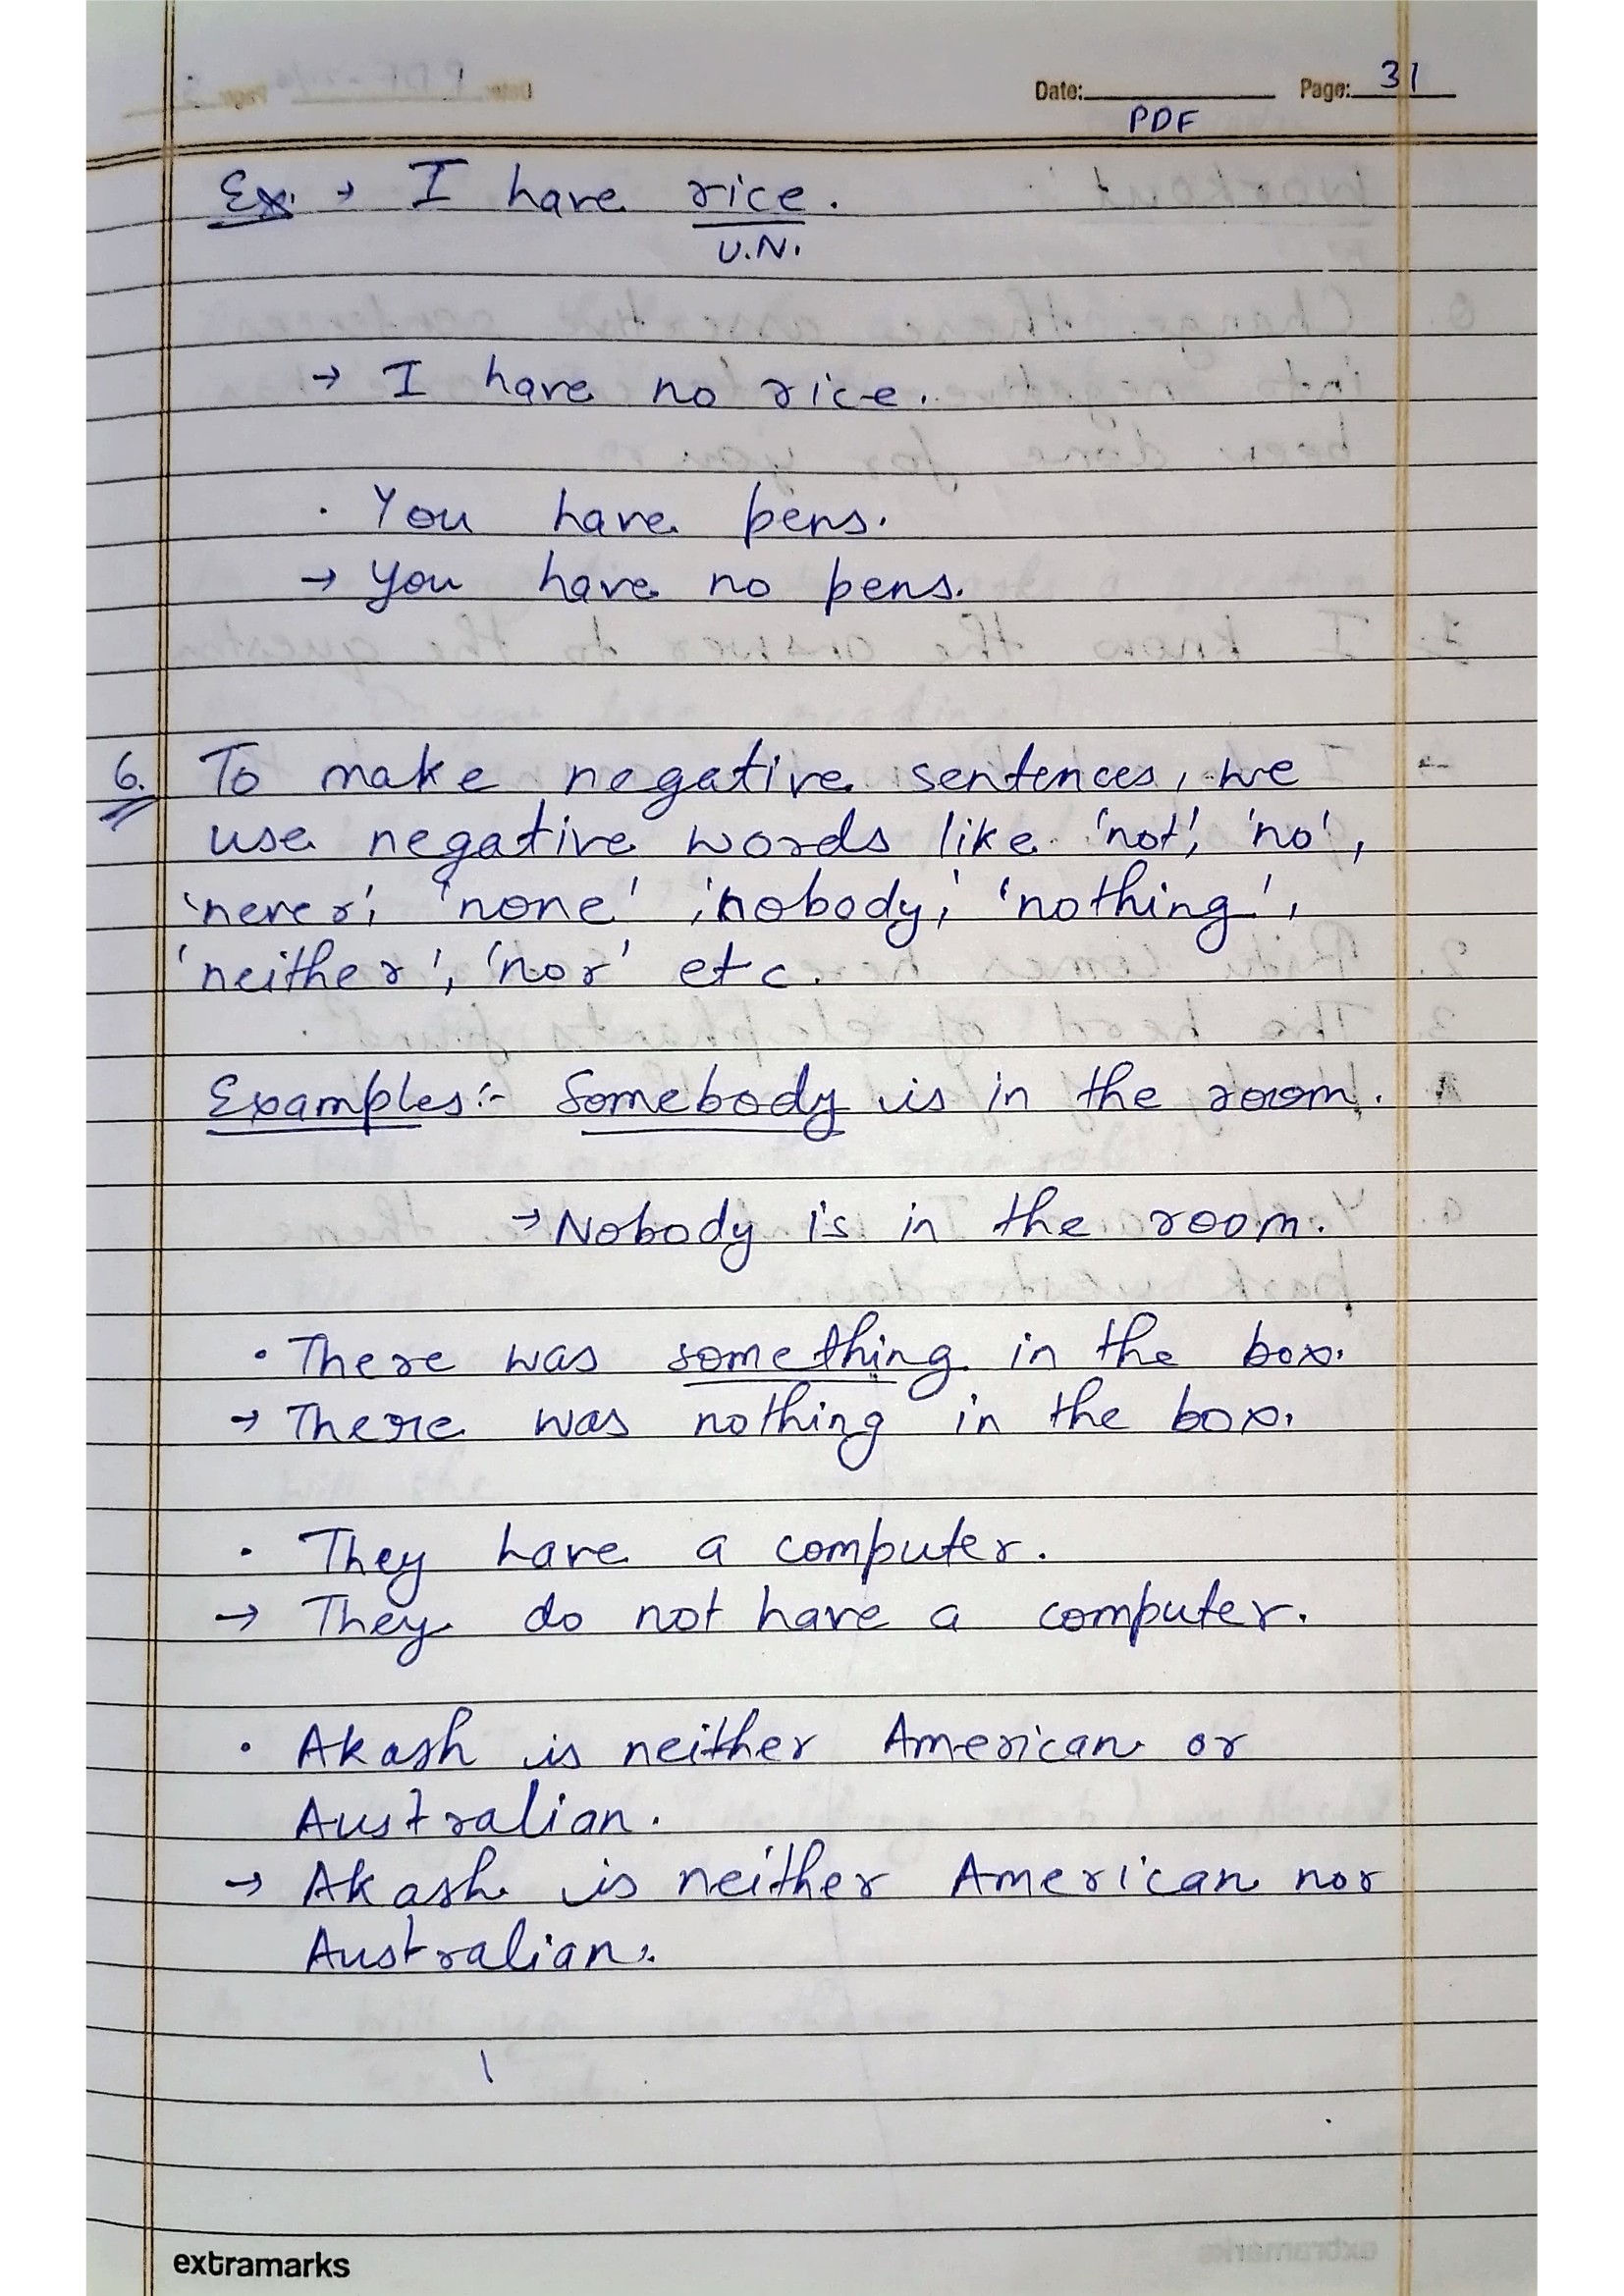 Date: Page: 31
PDF
Ex. → I have rice.
U.N.
→ I have no rice.
· You have pens.
→ You have no pens.
6. To make negative sentences, we
use negative words like 'not', 'no',
'never', 'none', 'nobody', 'nothing',
'neither', 'nor' etc.
Examples:- Somebody is in the room.
→ Nobody is in the room.
• There was something in the box.
→ There was nothing in the box.
• They have a computer.
→ They do not have a computer.
• Akash is neither American or
Australian.
→ Akash is neither American nor
Australian.
extramarks